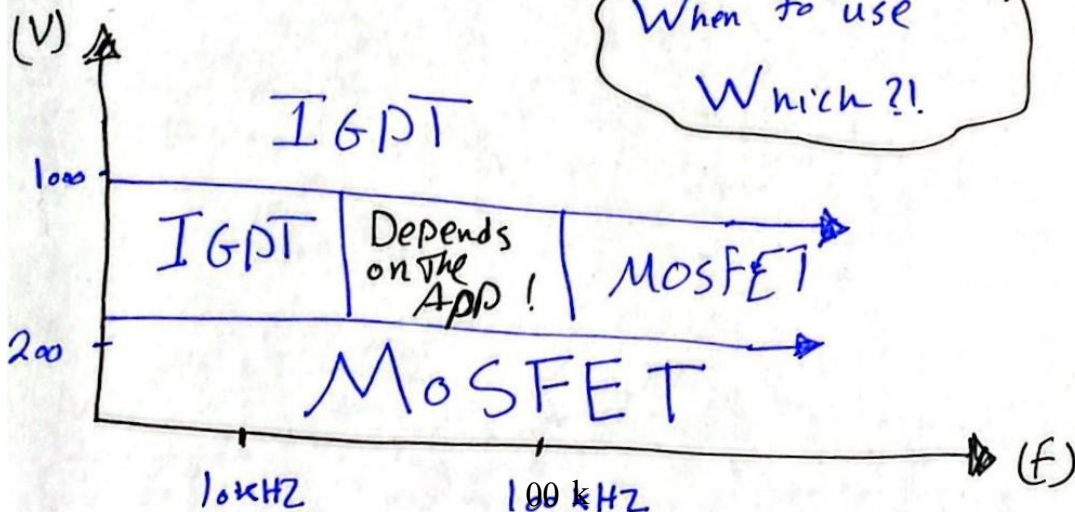 (V)
When to use
Which?!
IGDT
1000
IGDT
Depends
on The
App !
MOSFET
200
MOSFET
(f)
10kHz
100 kHz